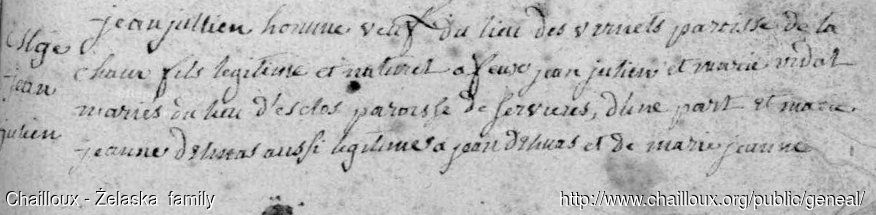 Mge
jean
julien
jean jullien homme veuf du lieu des vernets paroisse de la
chaux fils legitime et naturel a feux jean julien et marie vidal
mariés du lieu d'esclos paroisse de servieres, d'une part et marie
jeanne aussi legitime a jean et de marie jeanne
Chailloux - Żelaska family
http://www.chailloux.org/public/geneal/